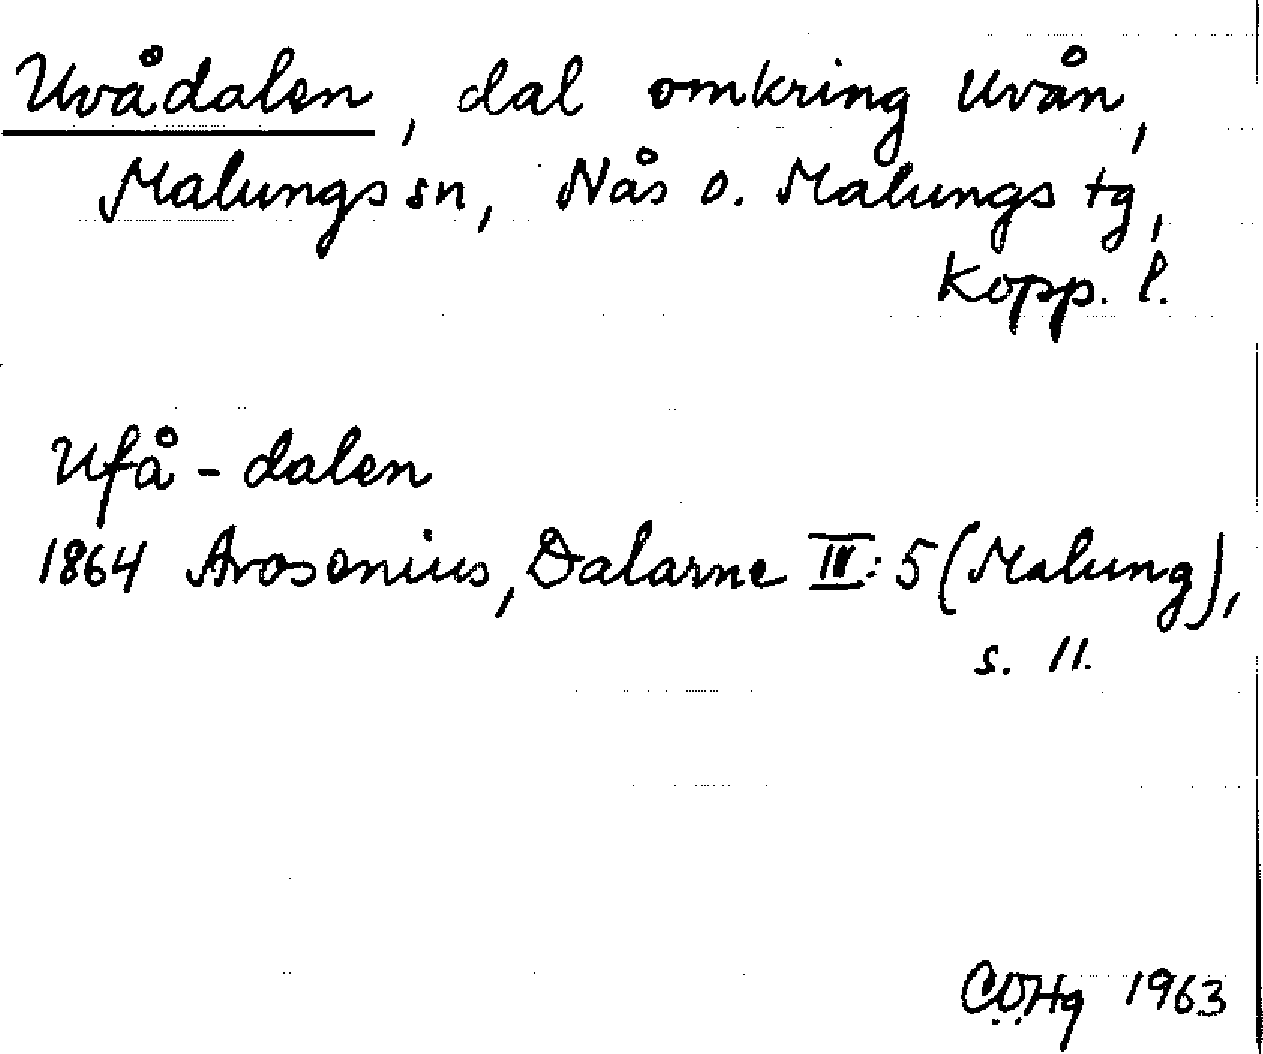 Uvådalen, dal omkring Uvån,
Malungs sn, Nås o. Malungs tg,
Kopp. l.
Ufå-dalen
1864 Arosenius, Dalarne IV: 5 (Malung),
s. 11.
1963